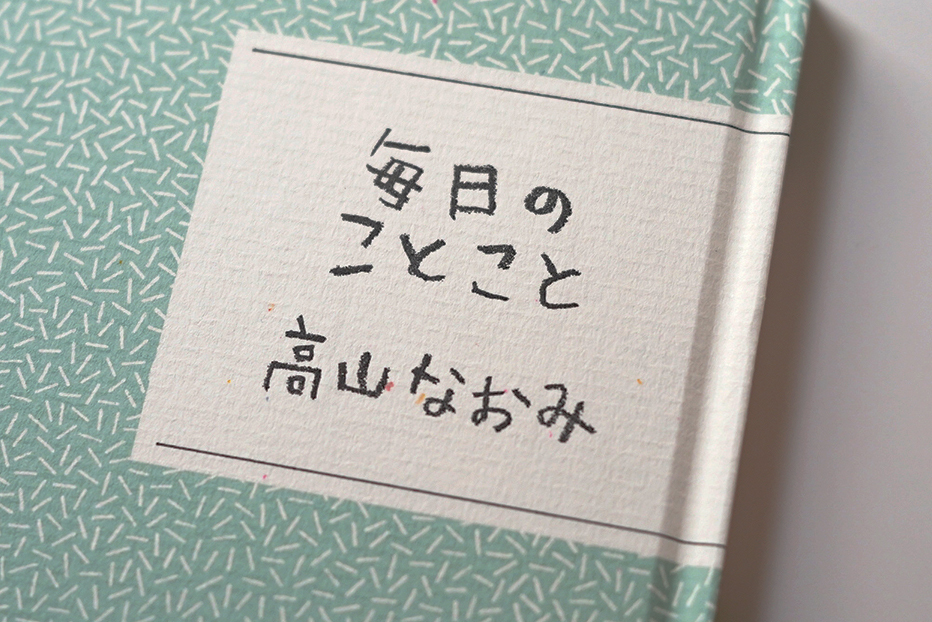 毎日の
ことこと
高山なおみ